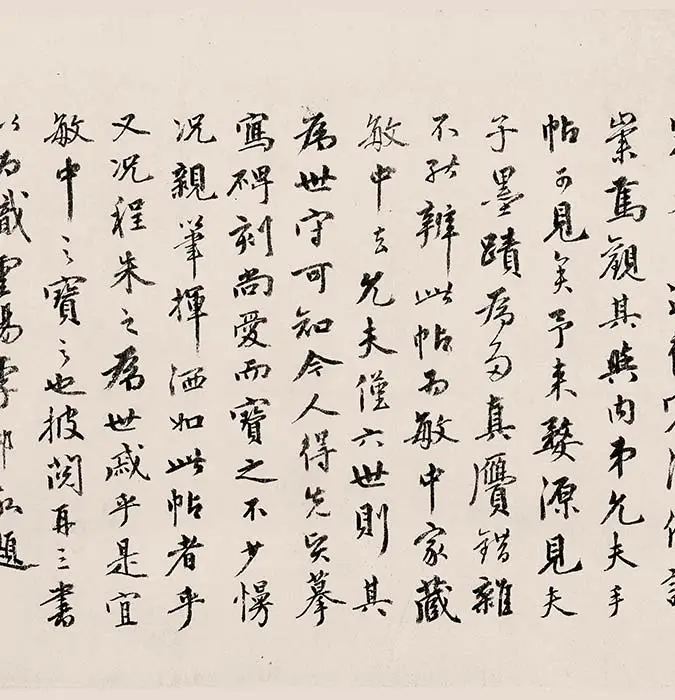 業篤觀其與内弟允夫手
帖可見矣予来婺源見夫
子墨蹟為多真贗錯雜
不能辨此帖為敏中家藏
敏中去允夫僅六世則其
為世守可知今人得先賢摹
寫碑刻尚愛而寶之不少慢
况親筆揮洒如此帖者乎
又况程朱之為世戚乎是宜
敏中之寶之也披閱再三書
以為識雲陽李祁題